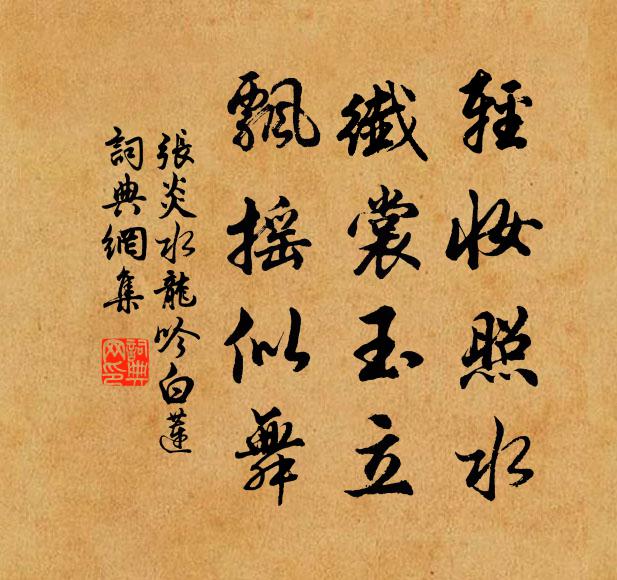 輕妝照水
纖裳玉立
飄搖似舞
張炎水龍吟白蓮
詞典網集
詞典
网印